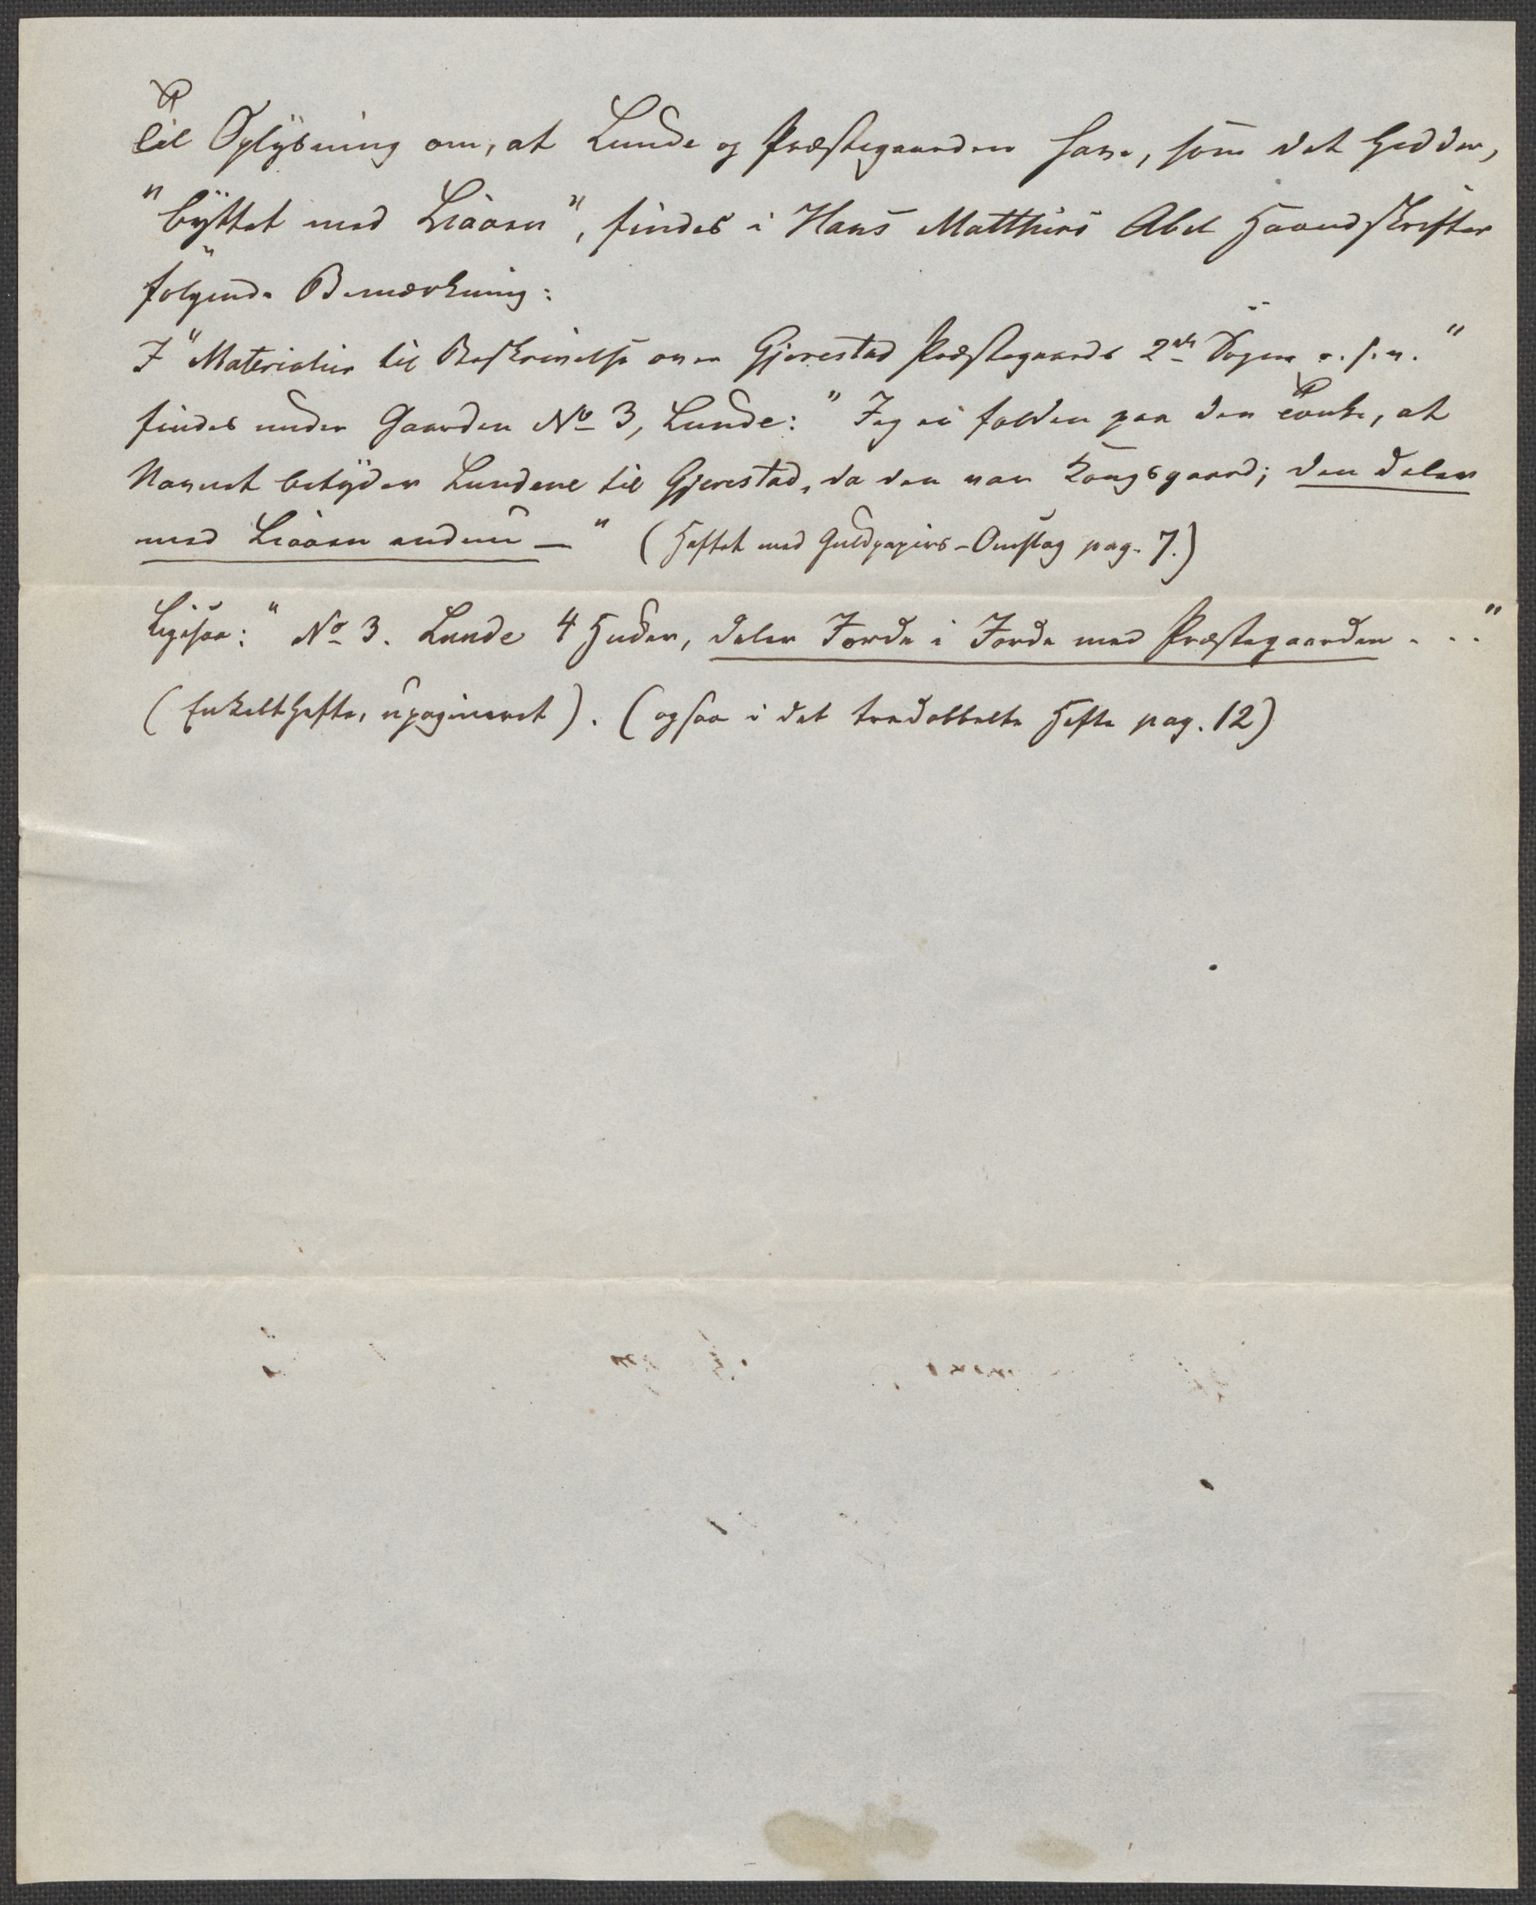 Til Oplysning om, at Lunde og Præstegaarden have, som det hedder,
"byttet med Liaasen", findes i Hans Matthias Abel Haandskrifter
følgende Bemærkning:
I "Materialier til Beskrivelse over Gjerestad Præstegjelds 2det Sogn o.s.v."
findes under Gaarden No 3, Lunde: "Jeg er falden paa den Tanke, at
Navnet betyder Lundene til Gjerestad, da den var Kongsgaard; den deler
med Liaasen endnu — " (Heftet med Guldpapirs-Omslag pag. 7.)
Ligesaa: " No 3. Lunde 4 Huder, deler Jorde i Jorde med Præstegaarden . . ."
(Enkelt Hefte, upagineret). (ogsaa i det tredobbelte Hefte pag. 12)